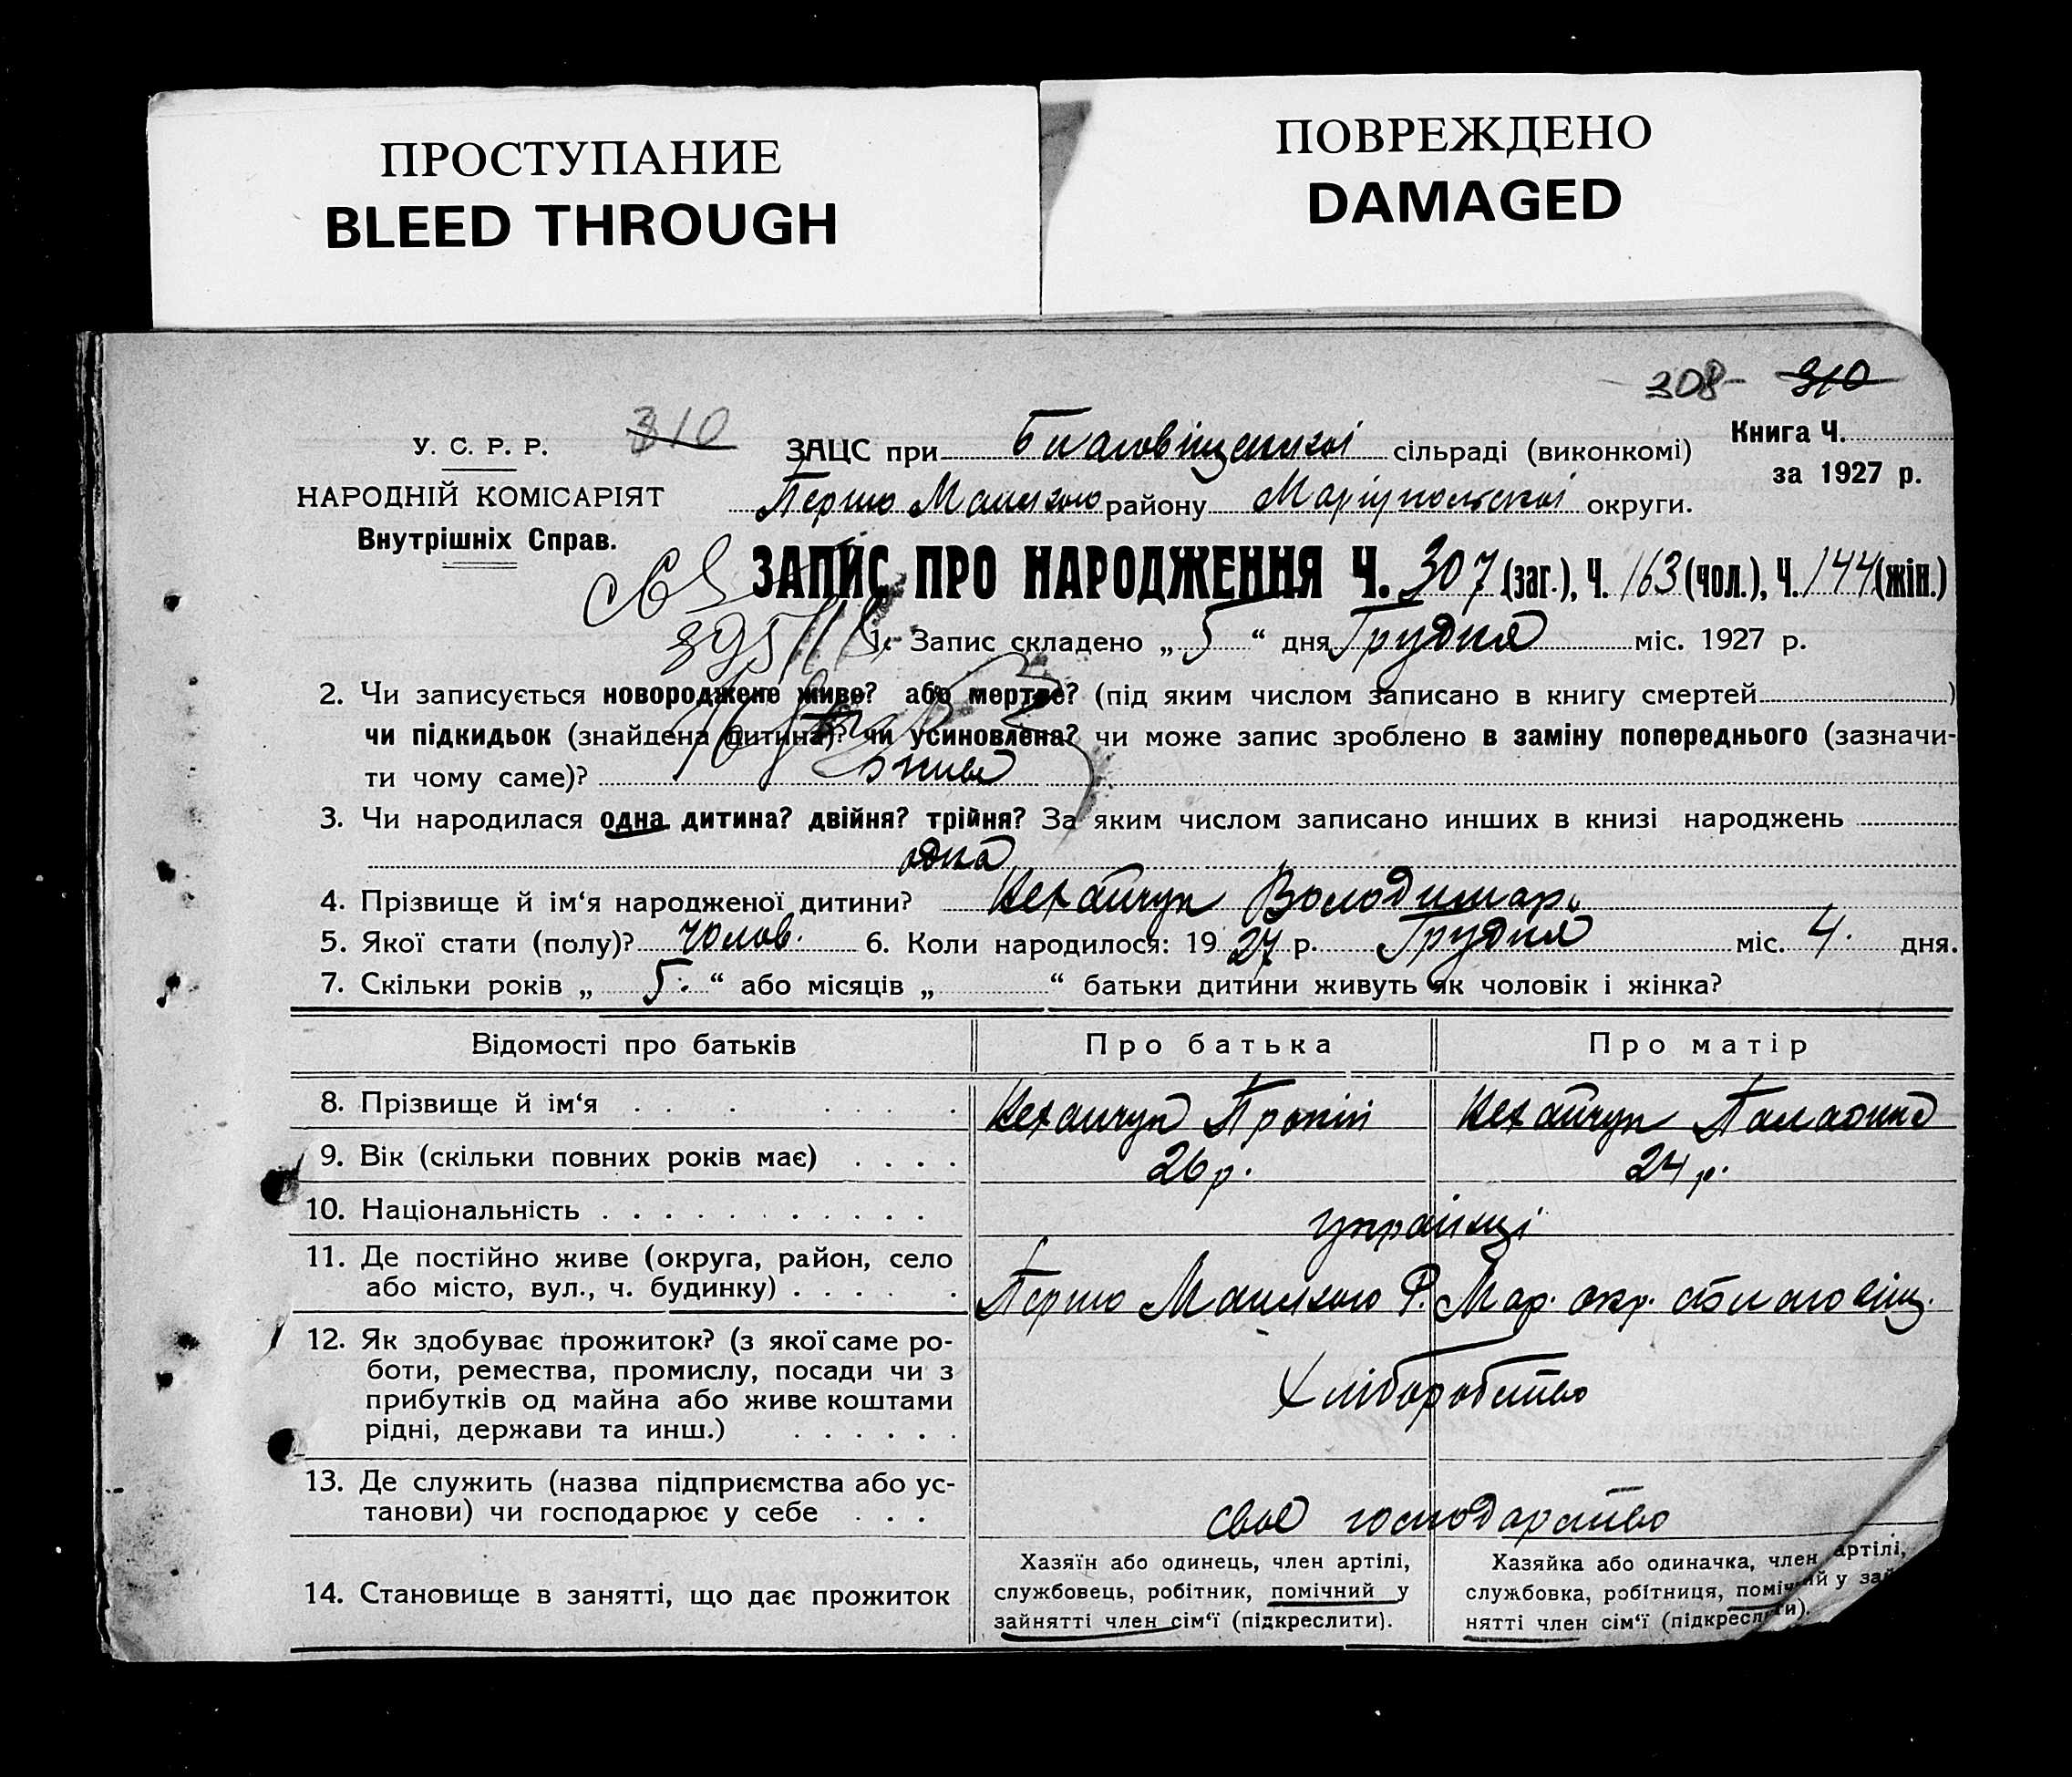 ПРОСТУПАНИЕ
BLEED THROUGH
ПОВРЕЖДЕНО
DAMAGED
308- 310
У. С. Р. Р.
310
НАРОДНІЙ КОМІСАРІЯТ
Внутрішніх Справ.
ЗАЦС при Благовіщенській сільраді (виконкомі)
Книга Ч.
за 1927 р.
Першо Манського району Маріупольської округи.
ЗАПИС ПРО НАРОДЖЕННЯ Ч. 307 (заг.), Ч. 163 (чол.), Ч. 144 (жін.)
1. Запис складено „ 5 “ дня Грудня міс. 1927 р.
2. Чи записується новороджене живе? або мертве? (під яким числом записано в книгу смертей )
чи підкидьок (знайдена дитина)? чи усиновлена? чи може запис зроблено в заміну попереднього (зазначи-
ти чому саме)? живе
3. Чи народилася одна дитина? двійня? трійня? За яким числом записано инших в книзі народжень
одна
4. Прізвище й ім‘я народженої дитини? Нехайчук Володимар.
5. Якої стати (полу)? чолов. 6. Коли народилося: 1927 р. Грудня міс. 4. дня.
7. Скільки років „ 5. “ або місяців „ “ батьки дитини живуть як чоловік і жінка?
Відомості про батьків Про батька Про матір
8. Прізвище й ім‘я Нехайчук Нехайчук
9. Вік (скільки повних років має) 26 р. 24 р.
10. Національність українці
11. Де постійно живе (округа, район, село
або місто, вул., ч. будинку) Першо Манського Р. Мар. окр. с Благовіщ.
12. Як здобуває прожиток? (з якої саме ро-
боти, ремества, промислу, посади чи з
прибутків од майна або живе коштами
рідні, держави та инш.)
Хліборобство
13. Де служить (назва підприємства або ус-
танови) чи господарює у себе
своє господарство
14. Становище в занятті, що дає прожиток
Хазяїн або одинець, член артілі,
службовець, робітник, помічний у
зайнятті член сім‘ї (підкреслити).
Хазяйка або одиначка, член артілі,
службовка, робітниця, помічний у зай
нятті член сім‘ї (підкреслити).